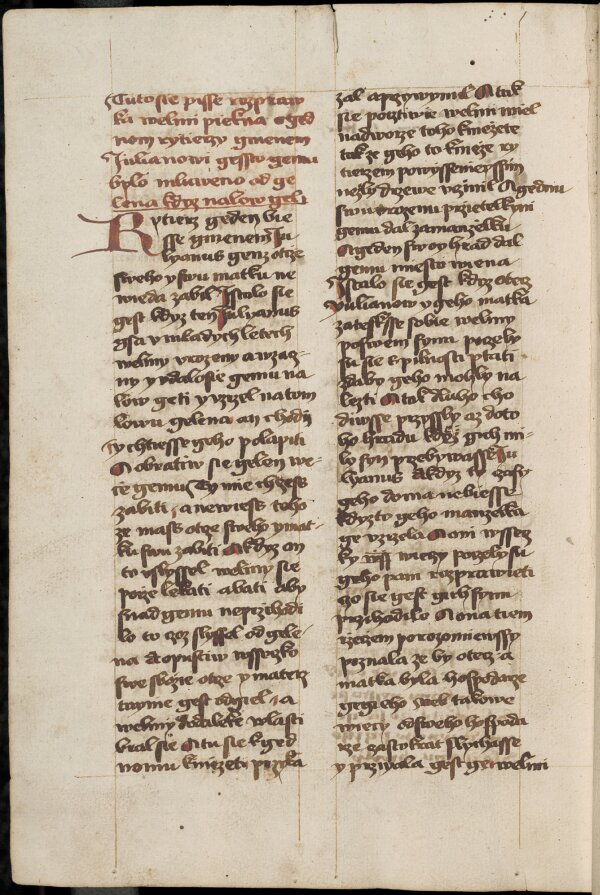 Tuto sie pisse rozpraw
ka welmi piekna o ged
nom rytierzy gmenem
Julianowi gessto gemu
bylo mluweno od ge
lena kdyz na low gel
Rytierz geden bie
sse gmenem Ju
lyanus genz otcze
sweho y swu matku ne
wieda zabil Jstalo sie
gest kdyz ten Julyanus
gsa w mladych letech
welmy vrozeny a wzacz
ny y vdalo sie gemu na
low geti y vzrzel na tom
lowu gelena an chodij
y chtiesse geho polapiti
A obratiw sie gelen we
cze gemu Ty mie chczess
zabiti a newiess toho
ze mass otcze sweho y mat
ku swu zabiti A kdyz on
to vslyssel welmy sie
pocze lekati a bati aby
snad gemu neprzihodi
lo to czoz slyssel od gele
na A opustiw wsseczko
swe sbozie otcze y materz
taynie gest odgiel a
welmy daleke wlasti
bral sie A tu sie k ged
nomu kniezeti przyka
zal a przywynul A tak
sie pocztiwie welmi miel
na dworze toho kniezete
tak ze geho to knieze ry
tierzem powyssenieyssim
nezly drzewe vczinil A gednu
swu vrozenu przietelkyni
gemu dal za manzelku
A geden swoy hrad dal
gemu miesto wiena
Jstalo sie gest kdyz otecz
Julianow y geho matka
zatesksse sobie welmy
po swem synu poczely
su sie s pilnosti ptati
zdaby geho mohly na
lezti A tak dluho cho
diwsse przyssly az do to
ho hradu kdez gich mi
lo syn przebywasse Ju
lyanus A kdyz ty czasy
geho doma nebiesse
kdyz to geho manzelka
ge vzrzela A oni wssecz
ky wieczy poczely su
geho pani rozprawieti
czo sie gest gich synu
przihodilo A ona tiem
rzeczem porozomiewssy
poznala ze by otecz a
matka byla hospodarze
gegieho neb takowe
wieczy od sweho hospoda
rze czastokrat slychasse
y przywala gest ge welmi